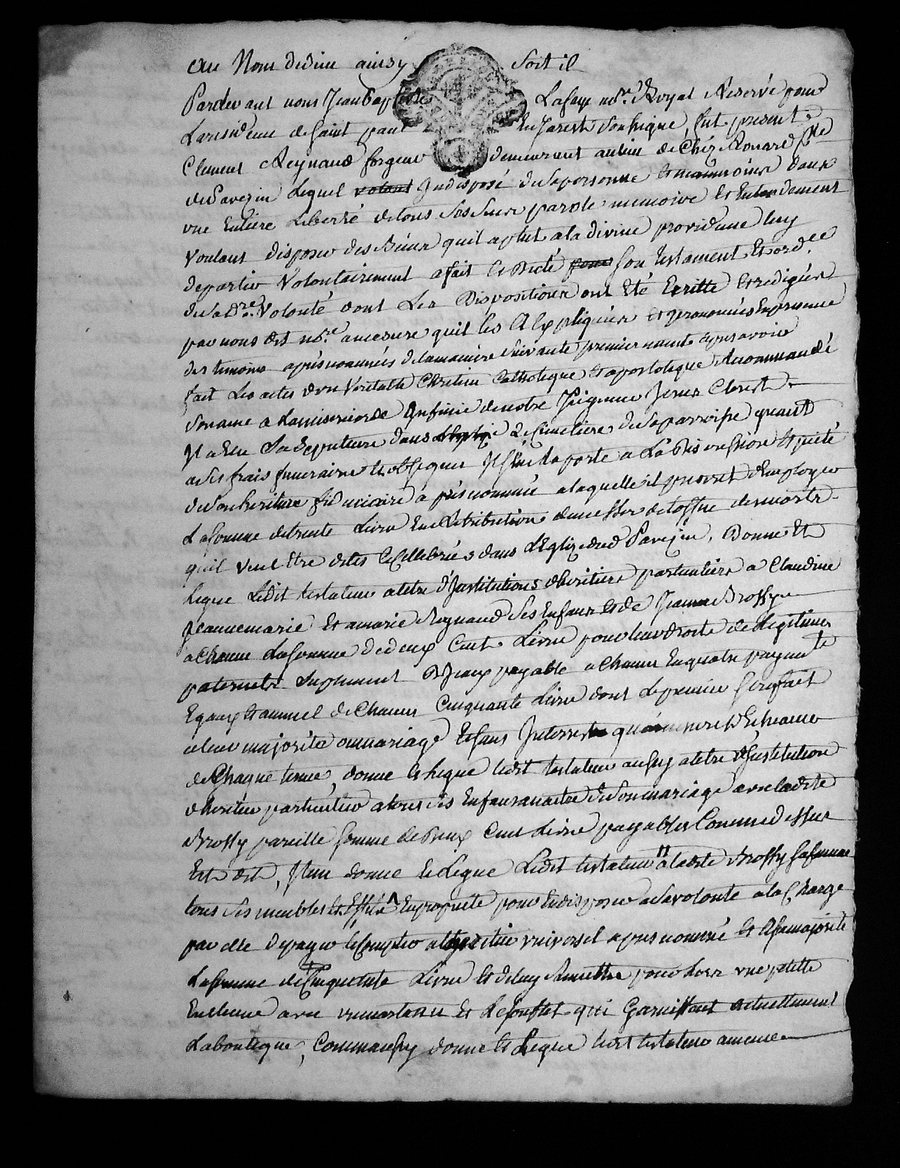 au Nom de dieu ainsy Soit il
Pardevant nous Jean Bap Lafay no.re Royal Reservé pour
La residence de Saint paul En Jarest Soussigné, fut present
Clement Reynaud forgeur demeurant au lieu de Chez Monard p.sse
de Pavezin Lequel volant Indisposé de sa personne dans
une Entiere Liberté de tous Ses Sens parole memoire et Entendement
Voulant disposer des Biens quil a plut a la divine providence luy
departir Volontairement a fait et Dicté son testament et ord.ce
de sa d.re Volonté dont Les Dispositions ont Eté Ecritte et redigées
par nous dit no.re amesure quil les a Expliquées et prononcées En presence
des temoins apres nommés de la maniere Suivante premierement apres avoir
fait Les actes d'un Veritable Chretien Catholique et apostolique Recommandé
Son ame a la misericorde Infinie de notre Seigneur Jesus Christ
Il a Elu Sa Sepulture dans le Cimetiere de Sa parroisse quant
a Ses frais funeraire et obseques Il Sen raporte a La Discression et pieté
de Son heritiere fiduciaire apres nommée a laquelle il prescrit d'Employer
La Somme de trente Livre En retribution de messes de loffice des morts
quil veut Etre dites et Cellebrées dans L'Eglise dud Pavezin, Donne Et
Legue Ledit testateur a titre d'Institutions d'heritiere particuliere a Claudine
Jeanne marie Et a marie Reynaud Ses Enfans Et de Jeanne Brossy
a Chacune La Somme de deux Cent Livre pour leur droits de Legitimes
paternels payable a Chacune En quatre payements
Egaux Et annuel de Chacun Cinquante Livre dont Le premier Sera fait
a leur majorité ou mariage Et Sans Interrest
de Chaque terme donne et Legue Ledit testateur aussy a titre d'Institution
d'heritier particulier a tous Ses Enfans a naitre de Son mariage avec ladite
Brossy pareille Somme de Deux Cent Livre payables Comme dessus
Est dit, Item donne et Legue Ledit testateur a ladite Brossy Sa femme
tous Ses meubles et Effets En proprieté pour En disposer a Sa volonté a la Charge
par elle de payer Et Compter a l'heritier universel apres nommé Et a Sa majorité
La Somme de Cinquante Livre Et de luy remettre pour Lors une petite
Enclume avec un marteau Et Le Soufflet qui Garnissent actuellement
La boutique, Comme aussy donne Et Legue Ledit testateur